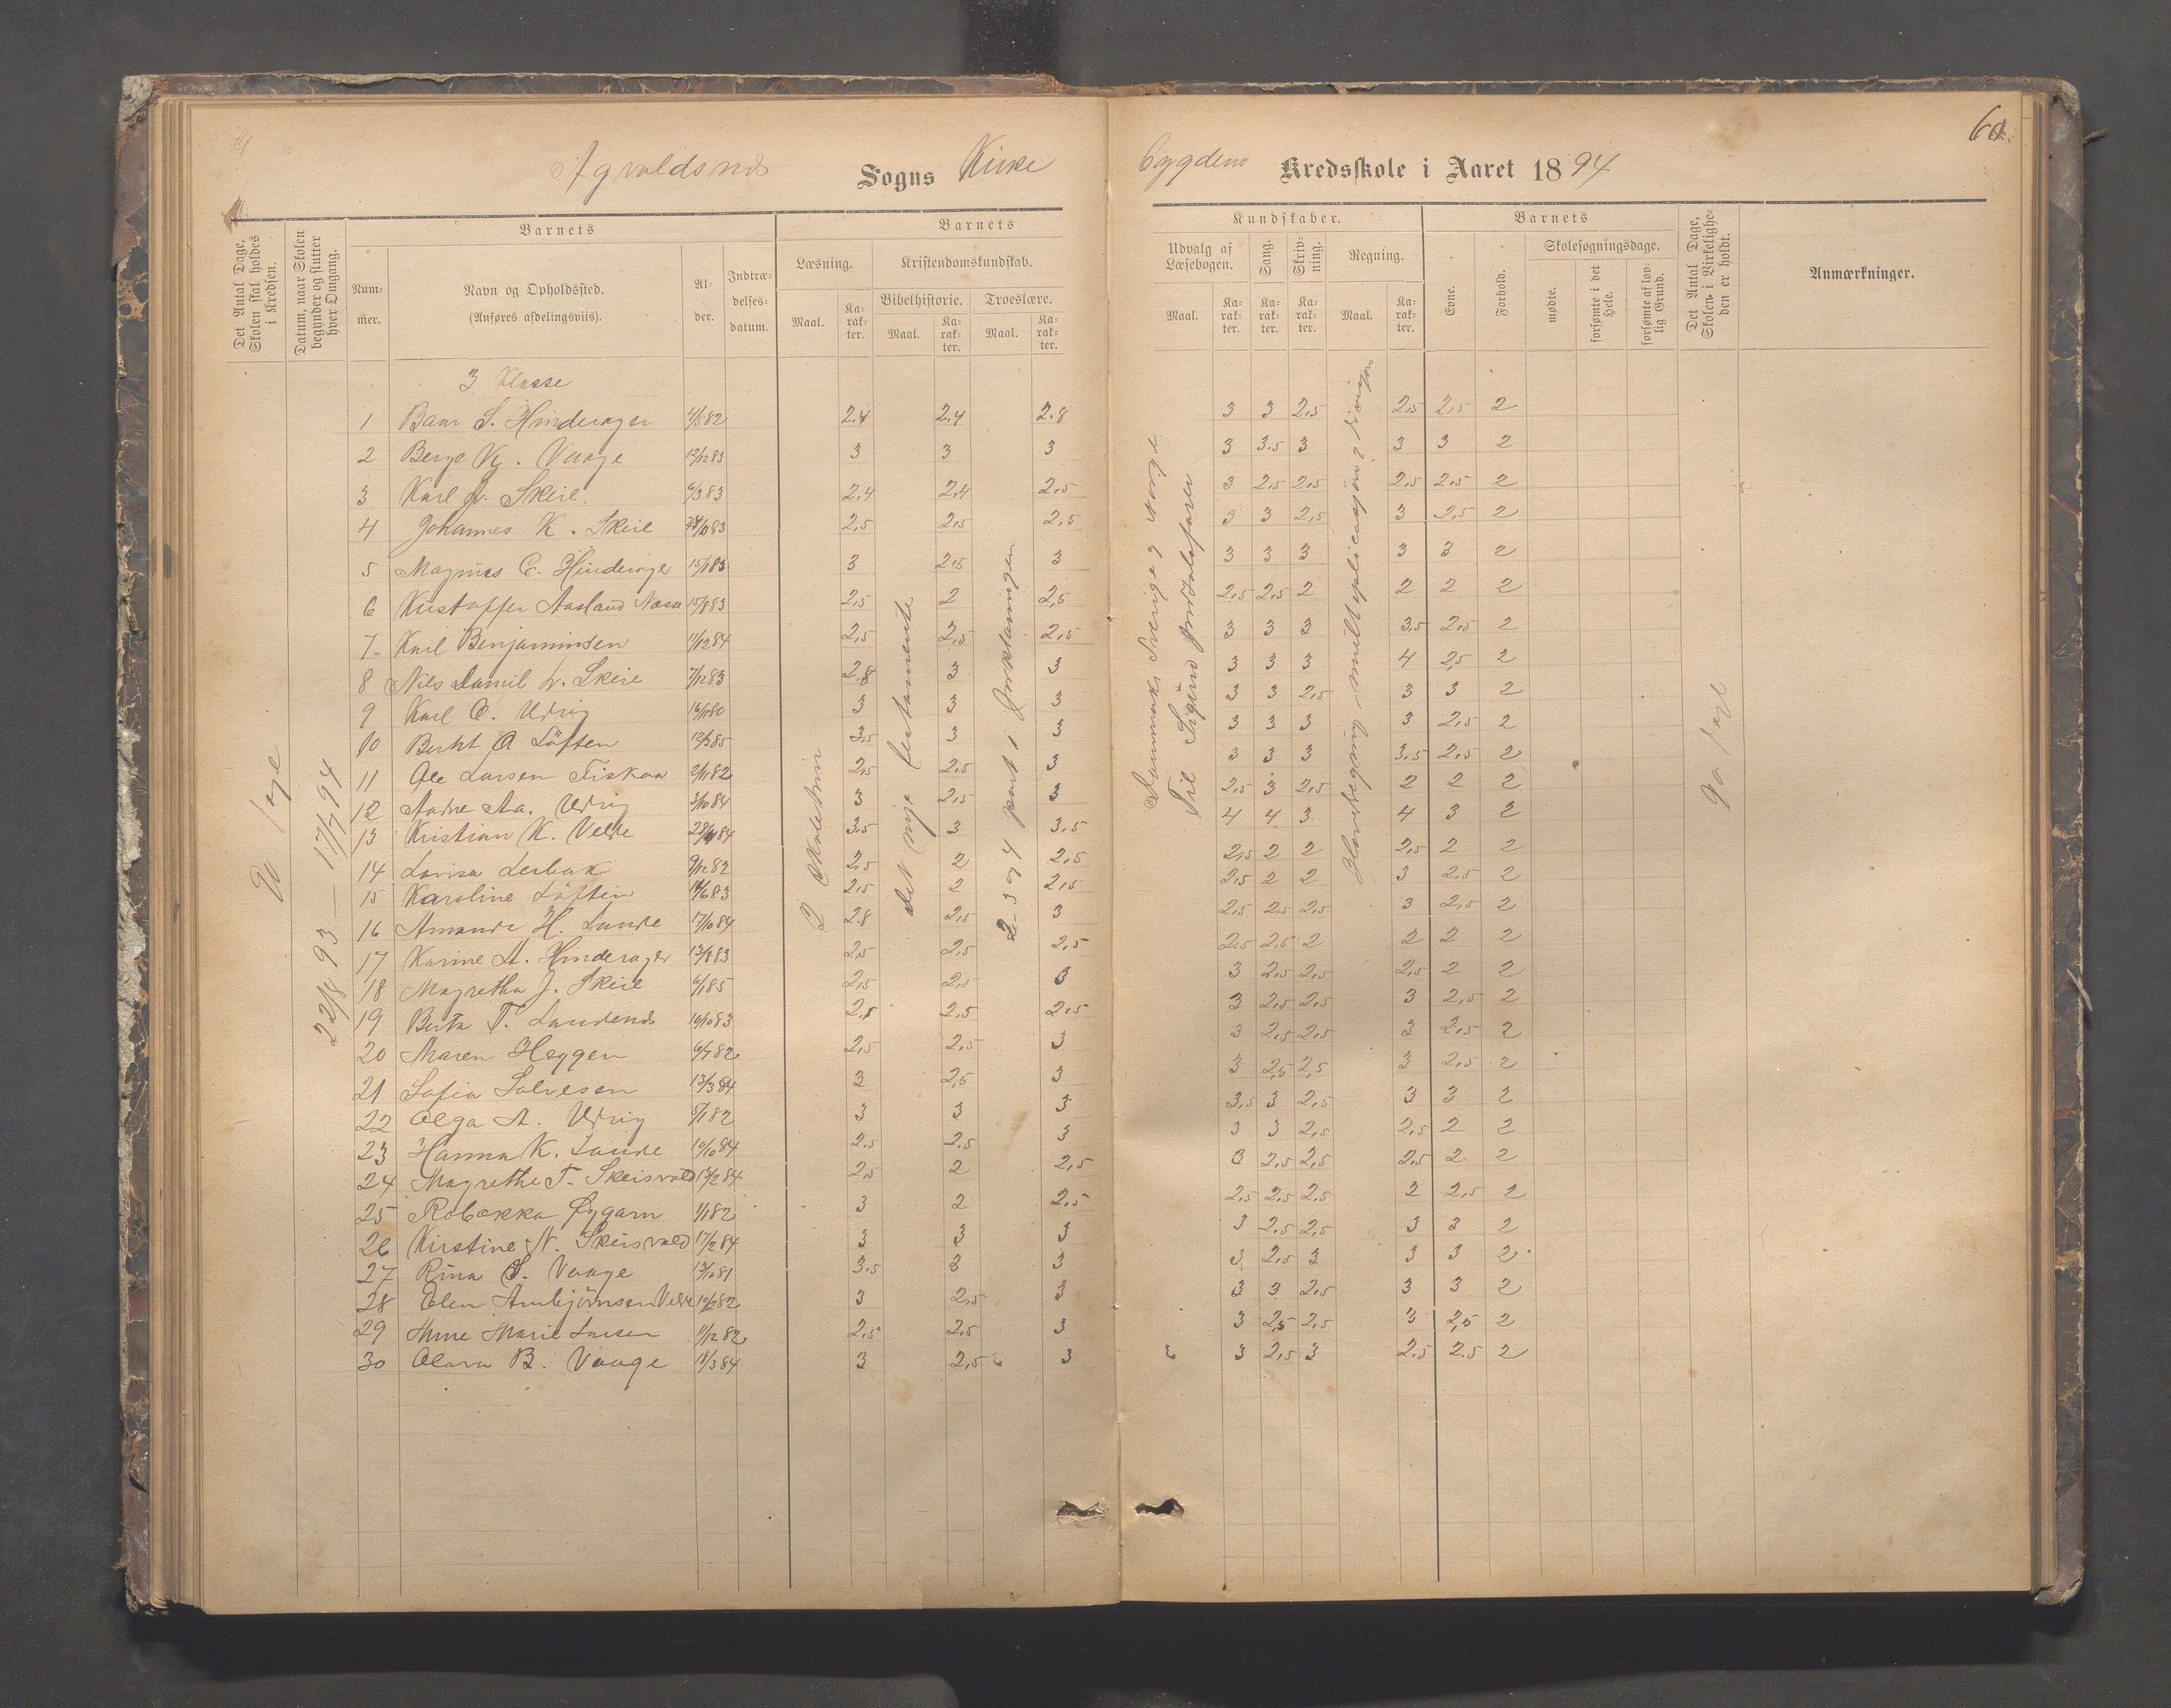 Agvoldsnes Sogns Kirke bygdens Kredsskole i Aaret 1894
60
Det Antal Dage, Skolen skal holdes i Kredsen.
Datum, naar Skolen begynder og slutter hver Omgang.
Barnets
Nummer.
Navn og Opholdssted.
(Anføres afdelingsviis).
Alder.
Indtrædelsesdatum.
Barnets
Læsning.
Maal.
Karakter.
Kristendomskundskab.
Bibelhistorie.
Maal.
Karakter.
Troeslære.
Maal.
Karakter.
Kundskaber.
Udvalg af Læsebogen.
Maal.
Karakter.
Sang.
Karakter.
Skrivning.
Karakter.
Regning.
Maal.
Karakter.
Barnets
Evne.
Forhold.
Skolesøgningsdage.
mødte.
forsømte i det Hele.
forsømte af lovlig Grund.
Det Antal Dage, Skolen i Virkeligheden er holdt.
Anmærkninger.
22/8 93 — 17/7 94
det nye testamente
2-3 og 4 part i Forklaringen
Danmark, Sverige og Norge
Til Sigurd Jorsalafarer
90 dage
3 Klasse
1 S. Hinderager 4/5 82 2.4 2.4 2.8 3 3 2,5 2,5 2,5 2
2 Berge K. Vaage 12/12 83 3 3 3 3 3.5 3 3 3 2
3 Karl J. Skeie 6/3 83 2,4 2,4 2,5 3 2,5 2,5 2,5 2,5 2
4 Johannes K. Skeie 83 2,5 2,5 2,5 3 3 2,5 3 2,5 2
5 Magnus E. Hinderager 83 3 2,5 3 3 3 3 3 3 2
6 Kristoffer Aasland Næsse 15/8 83 2,5 2 2,5 2,5 2,5 2 2 2 2
7 Karl Benjaminsen 11/12 84 2,5 2,5 2,5 3 3 3 3,5 2,5 2
8 Nils Danil Skeie 7/12 83 2.8 3 3 3 3 3 4 2,5 2
9 Karl Udvig 3 3 3 3 3 2,5 3 3 2
10 Løften 85 3,5 3 3 3 3 3 3 2,5 2
11 Ole Larsen Fiskaa 2/11 82 2,5 2,5 3 3 3 3 3.5 2,5 2
12 Aa. Udvig 3/10 84 3 2,5 3 2,5 3 2,5 2 2 2
13 Kristian K. Velde 84 3.5 3 3.5 4 4 3 4 3 2
14 Lovisa 9/12 82 2,5 2 2,5 2,5 2 2 2,5 2 2
15 Karoline Løften 83 2,5 2 2,5 2,5 2 2 3 2,5 2
16 Amanda H. Lande 17/10 84 2.8 2,5 3 2,5 2,5 2,5 3 2,5 2
17 Karine A. Hinderager 13/8 83 2,5 2,5 2,5 2,5 2,5 2 2 2 2
18 Magretha J. Skeie 6/1 85 2,5 2,5 3 3 2,5 2,5 2,5 2 2
19 Berta T. 10/10 83 2,5 2,5 2,5 3 2,5 2,5 3 2,5 2
20 Maren Heggen 6/7 82 2,5 2,5 3 3 2,5 2,5 3 2,5 2
21 Sofia Salvesen 13/3 84 3 2,5 3 3 2,5 2,5 3 2,5 2
22 Olga A. Udvig 82 3 3 3 3,5 3 2,5 3 3 2
23 Hanna K. Lande 10/10 84 2.5 2.5 3 3 3 2,5 2,5 2 2
24 Magrethe T. Skeisvold 84 2,5 2 2,5 3 2,5 2,5 2,5 2 2
25 Robekka Øygarn 1/1 82 3 2 2,5 2,5 2,5 2,5 2 2,5 2
26 Kirstine N. Skeisvold 17/2 84 3 3 3 3 2,5 2,5 3 3 2
27 Rina S. Vaage 13/10 81 3.5 3 3 3 2,5 3 3 3 2
28 Elen Arnbjörnsen Velde 82 3 2,5 3 3 3 2,5 3 3 2
29 Anne Marie Larsen 11/12 82 2,5 2,5 3 3 2,5 2,5 3 2,5 2
30 B. Vaage 18/3 84 3 2,5 3 3 2,5 3 2,5 2.5 2